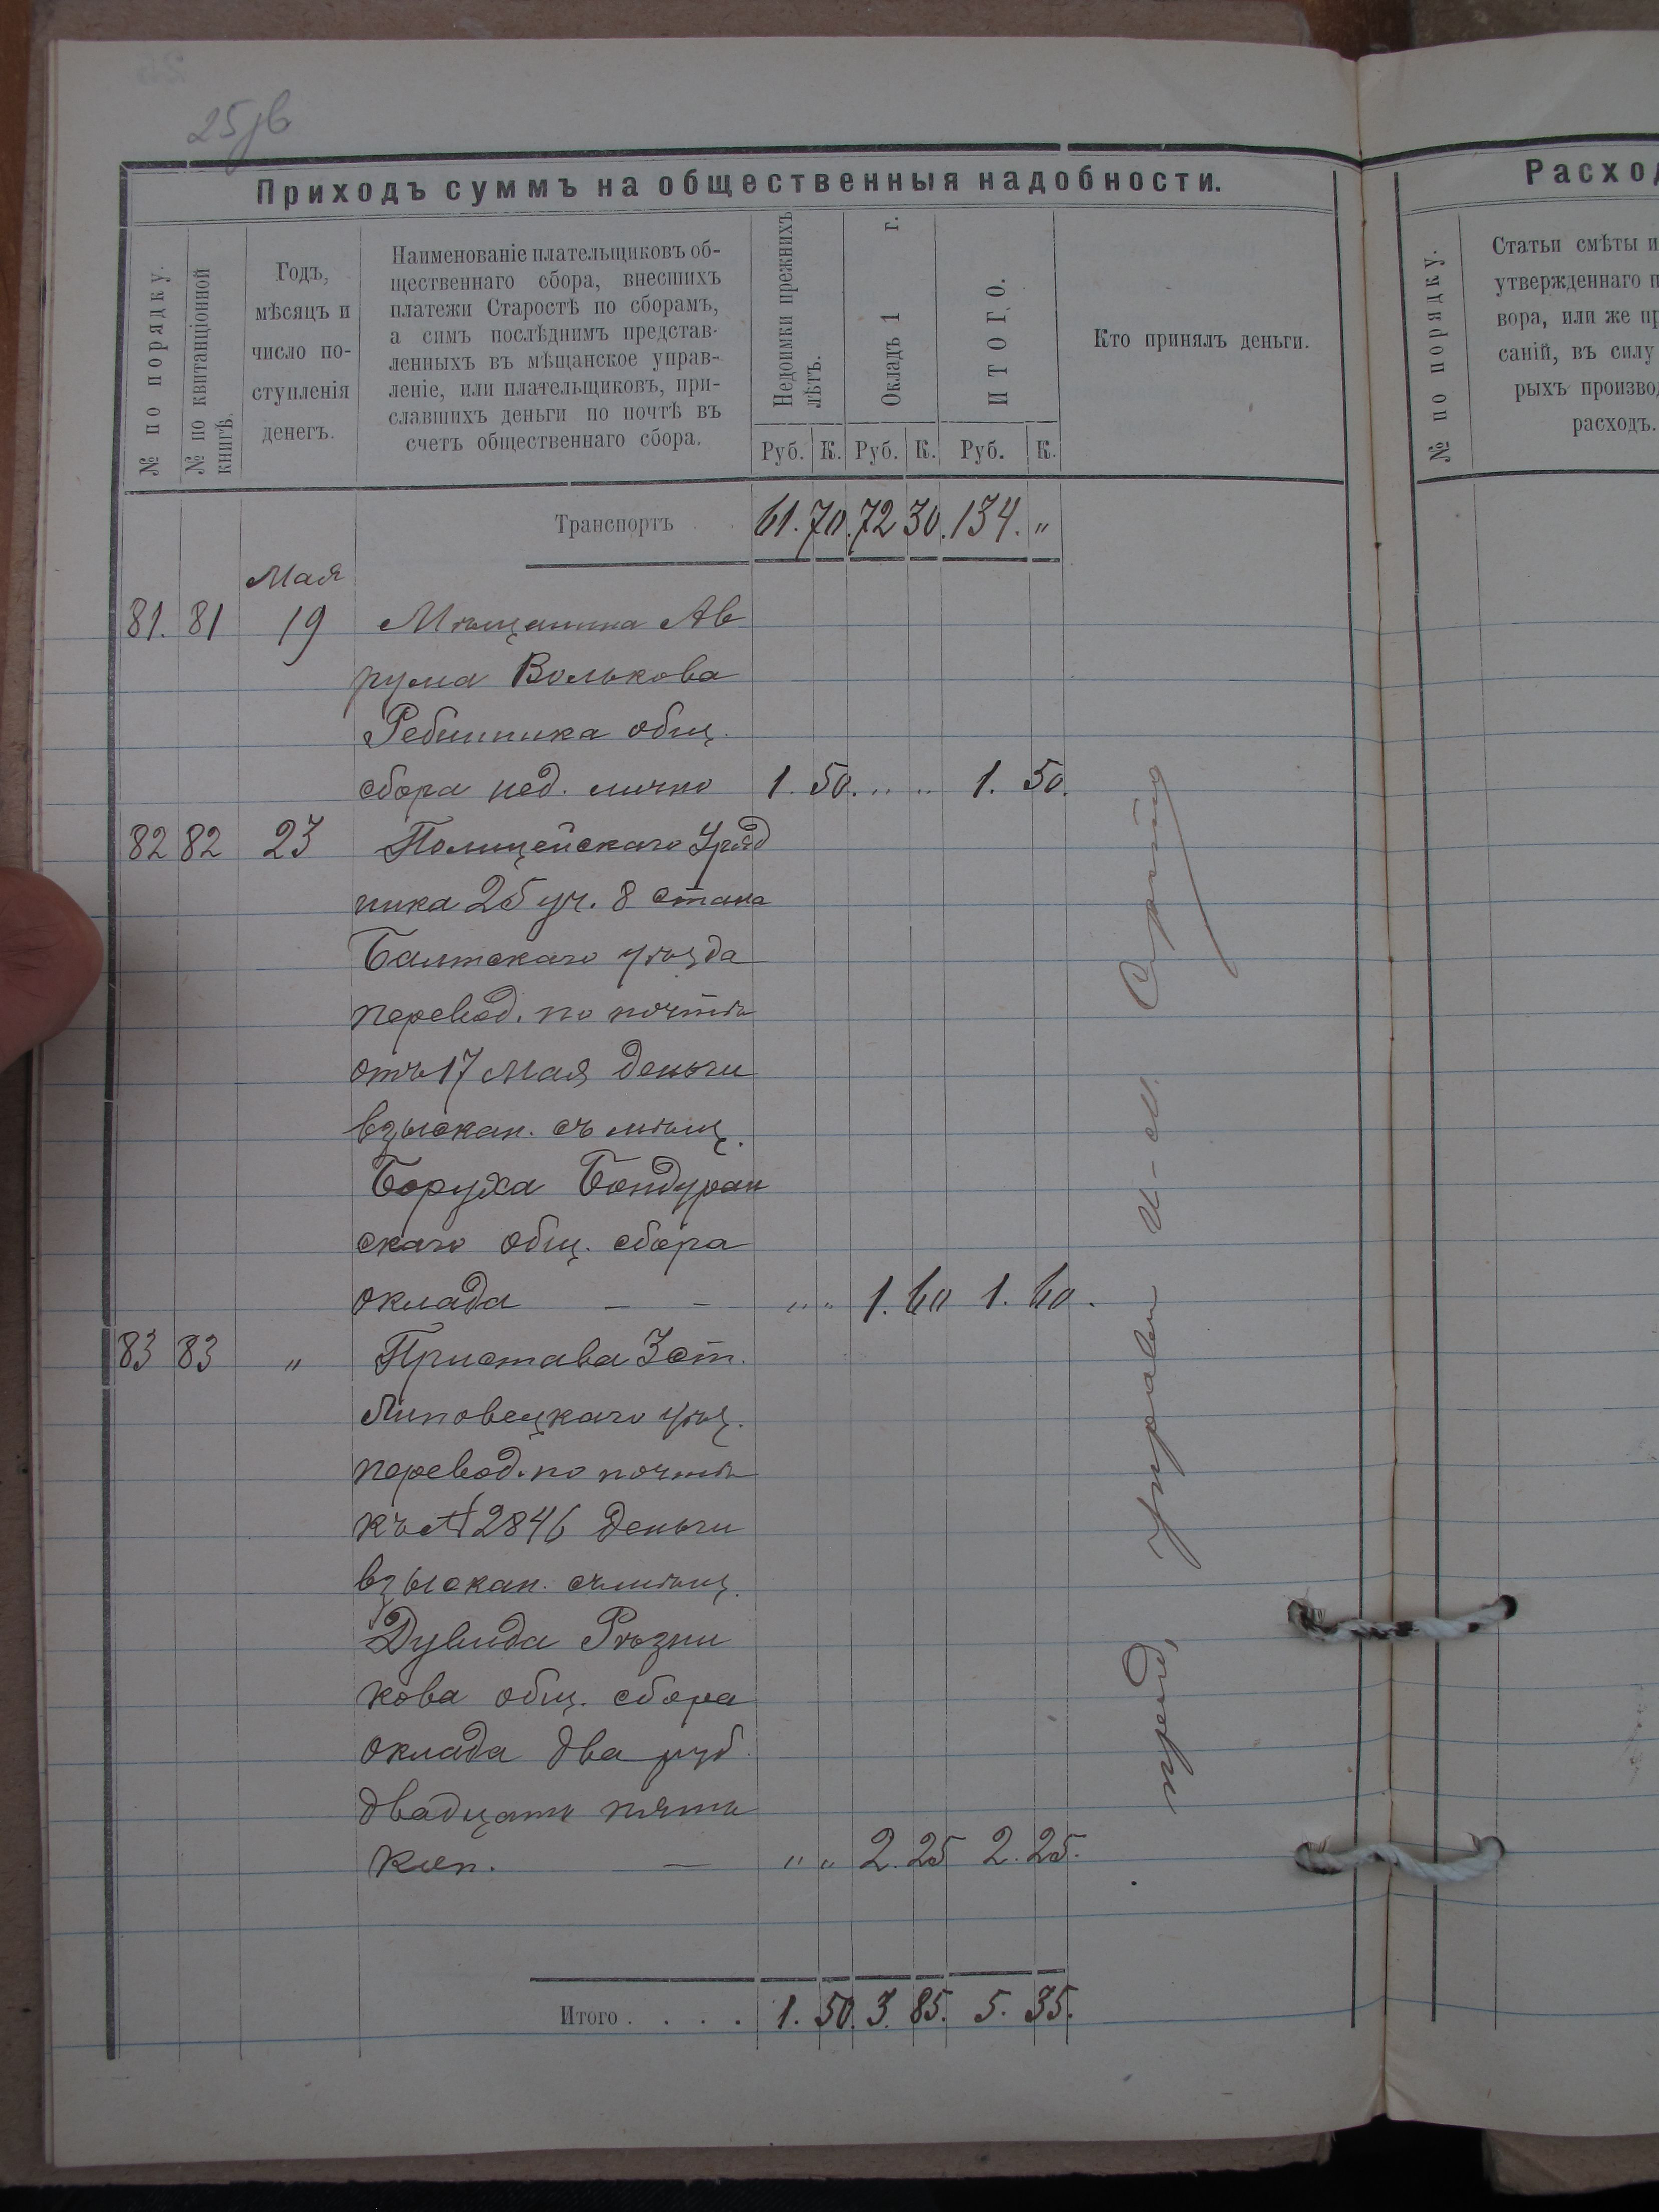 25
Приходъ суммъ на общественныя надобности.
№ по порядку.
№ по квитанціонной
книгѣ.
Годъ,
мѣсяцъ и
число по-
ступленія
денегъ.
Наименованіе плательщиковъ об-
щественнаго сбора, внесшихъ
платежи Старостѣ по сборамъ,
а симъ послѣднимъ представ-
ленныхъ въ мѣщанское управ-
леніе, или плательщиковъ, при-
славшихъ деньги по почтѣ въ
счетъ общественнаго сбора.
Недоимки прежнихъ
лѣтъ.
Окладъ 1 г.
ИТОГО.
Кто принялъ деньги.
Руб. К. Руб. К. Руб. К.
Транспортъ . . 61. 70. 72 30. 134. „
Мая
81. 81 19 Мѣщанина Ав
рума Волькова
Ребинника общ.
сбора нед. лично 1. 50. „ „ 1. 50.
82 82 23 Полицейскаго Уряд
ника 25 уч. 8 стана
Балтскаго уѣзда
перевод. по почтѣ
отъ 17 Мая деньги
взыскан. съ мѣщ.
Боруха Бондуран
скаго общ. сбора
оклада — — „ „ 1. 60 1. 60.
83 83 „ Пристава 3 ст.
Липовецкаго уѣз.
перевод. по почтѣ
къ № 2846 деньги
взыскан. съ мѣщ.
Дувида Рѣзни
кова общ. сбора
оклада два руб.
двадцать пять
коп. — „ „ 2. 25 2. 25.
Итого . . . . 1. 50. 3. 85. 5. 35.
Расход
№ по порядку.
Статьи смѣты и
утвержденнаго п
вора, или же пр
саній, въ силу
рыхъ производ
расходъ.